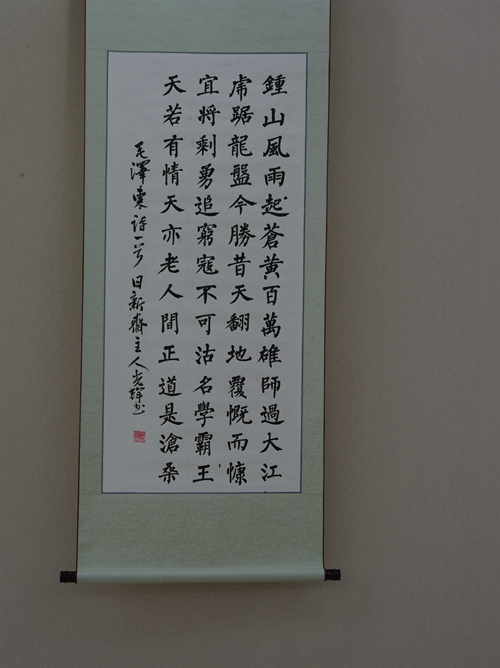 鍾山風雨起蒼黃百萬雄師過大江
虎踞龍盤今勝昔天翻地覆慨而慷
宜將剩勇追窮寇不可沽名學霸王
天若有情天亦老人間正道是滄桑
毛澤東詩一首日新齋主人光輝书